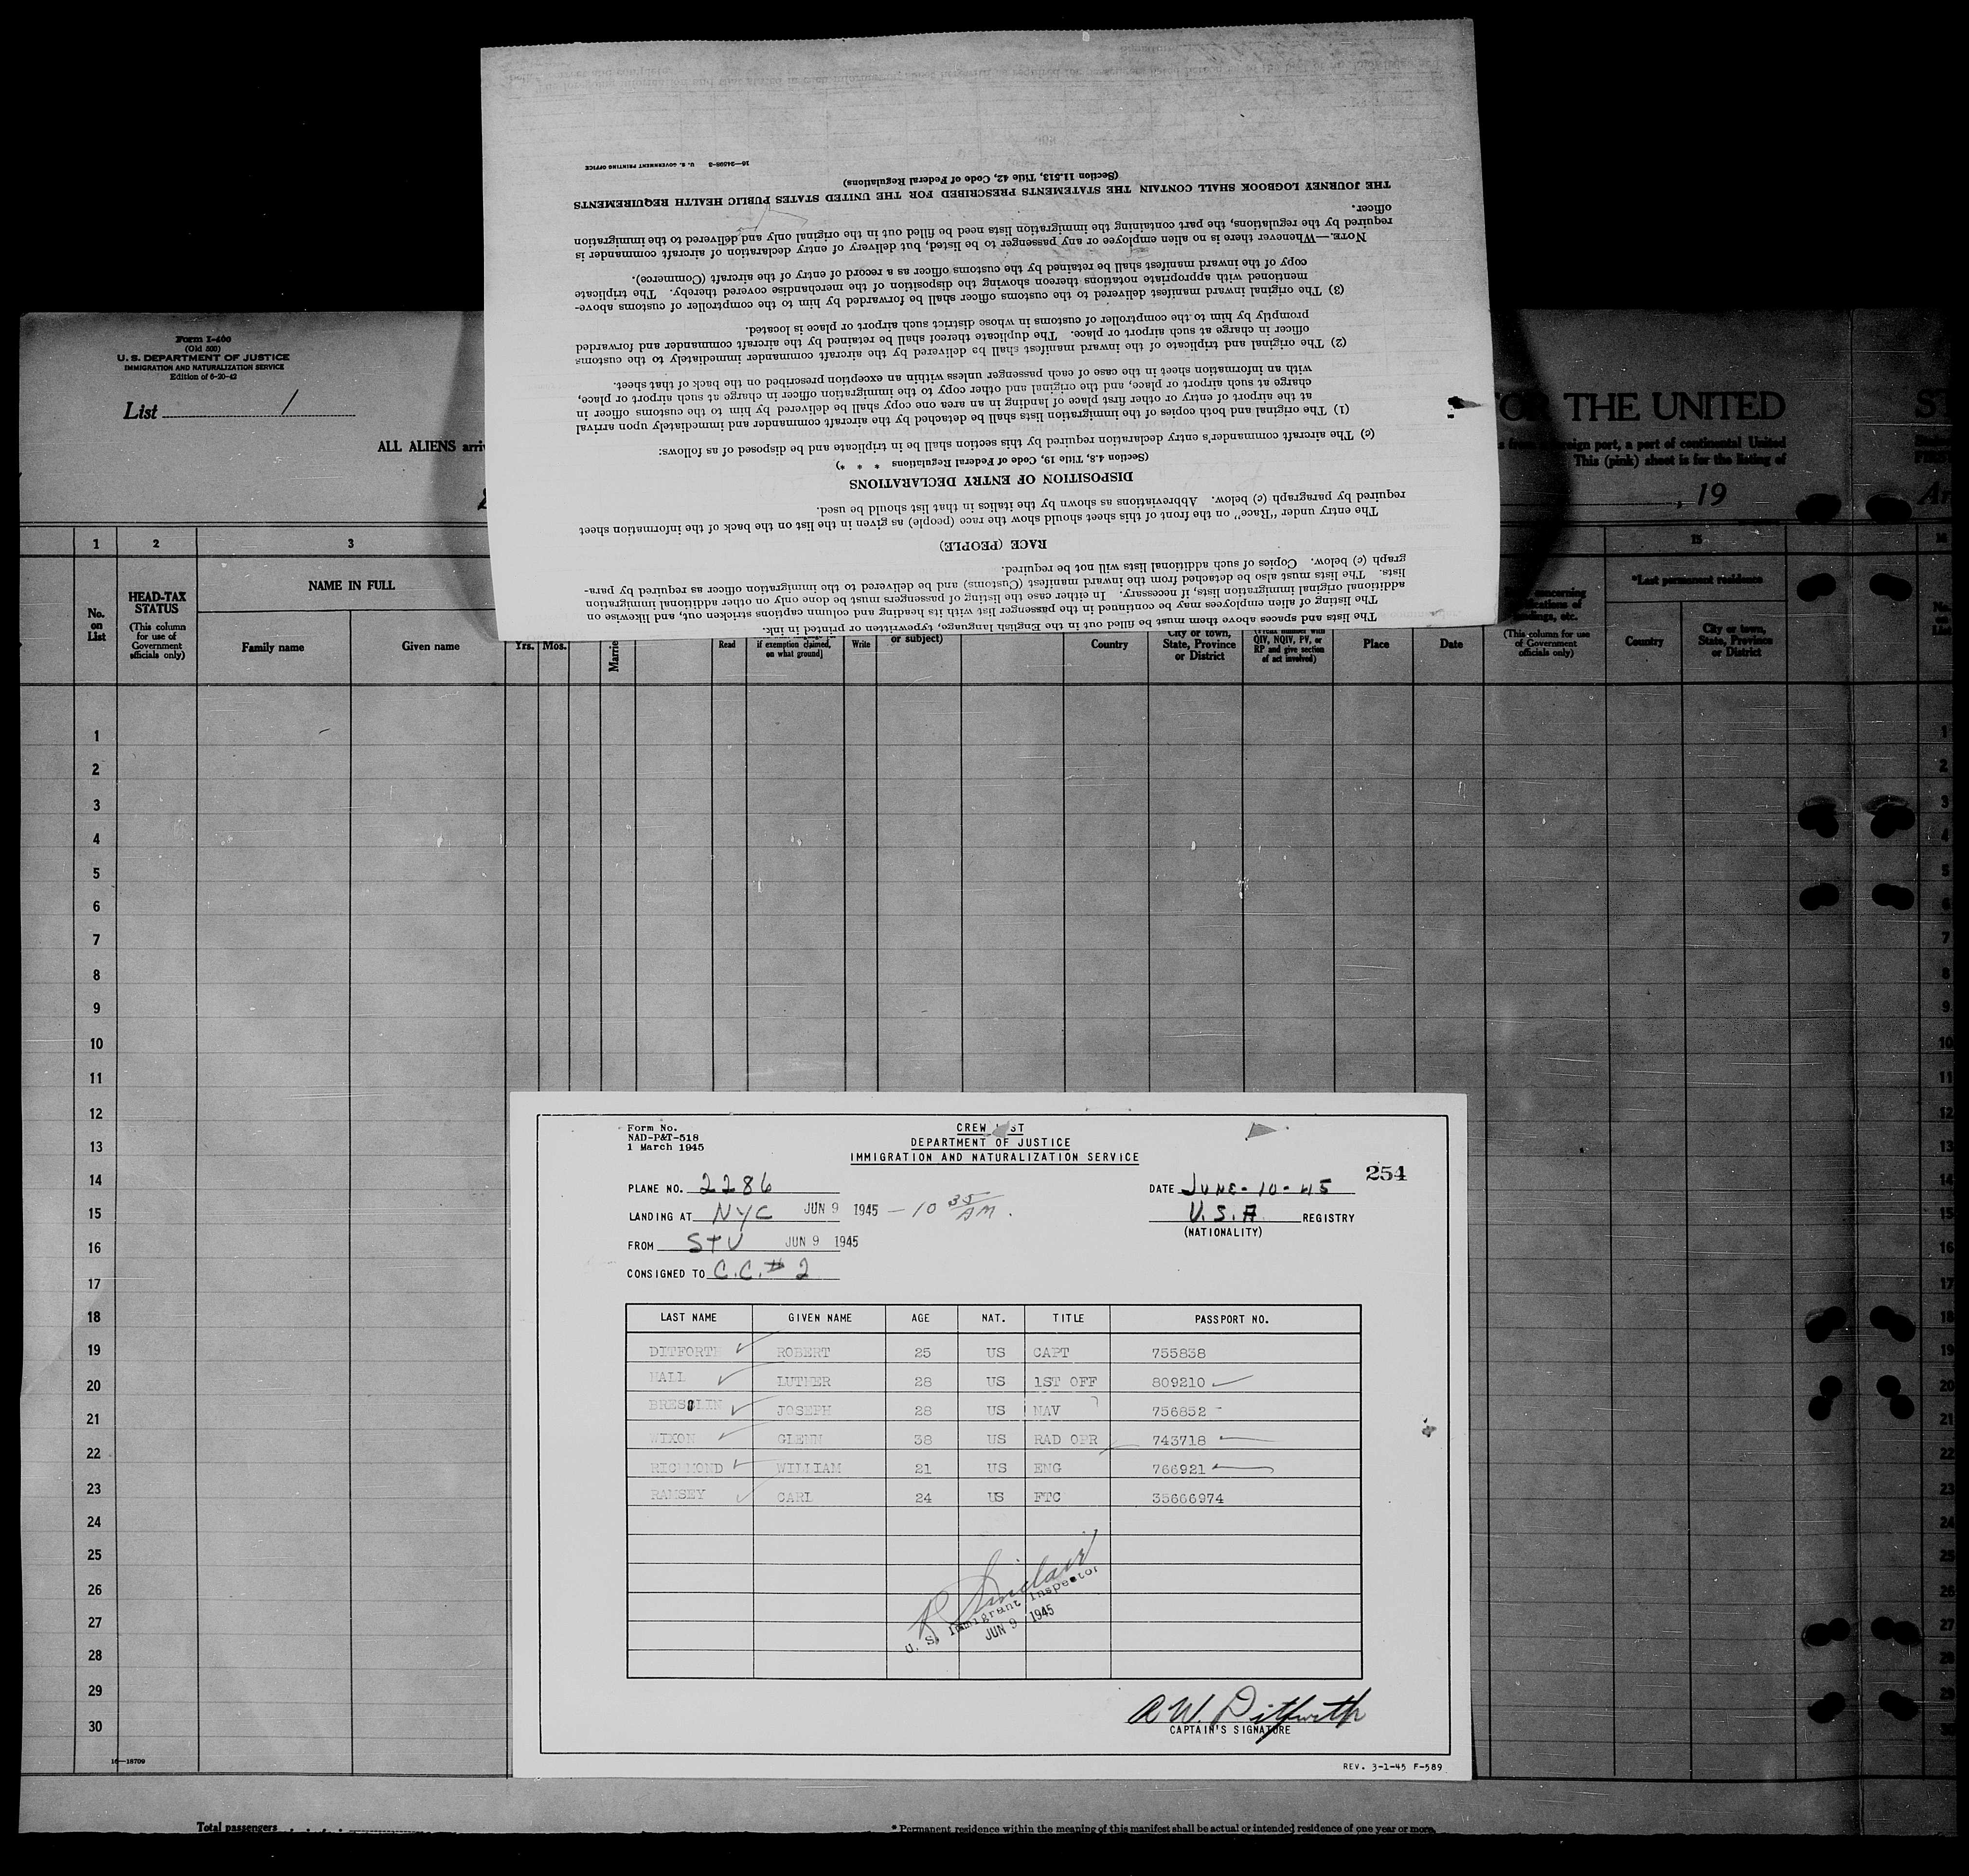 THE JOURNEY LOGBOOK SHALL CONTAIN THE STATEMENTS PRESCRIBED FOR THE UNITED STATES PUBLIC HEALTH REQUIREMENTS
(Section 11.513, Title 42, Code of Federal Regulations)
16—24598-3 U. S. GOVERNMENT PRINTING OFFICE
The lists and spaces above them must be filled out in the English language, typewritten or printed in ink.
The listing of alien employees may be continued in the passenger list with its heading and column captions stricken out, and likewise on
additional original immigration lists, if necessary. In either case the listing of passengers must be done only on other additional immigration
lists. The lists must also be detached from the inward manifest (Customs) and be delivered to the immigration officer as required by para-
graph (c) below. Copies of such additional lists will not be required.
RACE (PEOPLE)
The entry under "Race" on the front of this sheet should show the race (people) as given in the list on the back of the information sheet
required by paragraph (c) below. Abbreviations as shown by the italics in that list should be used.
DISPOSITION OF ENTRY DECLARATIONS
(Section 4.8, Title 19, Code of Federal Regulations * * *)
(c) The aircraft commander's entry declaration required by this section shall be in triplicate and be disposed of as follows:
(1) The original and both copies of the immigration lists shall be detached by the aircraft commander and immediately upon arrival
at the airport of entry or other first place of landing in an area one copy shall be delivered by him to the customs officer in
charge at such airport or place, and the original and other copy to the immigration officer in charge at such airport or place,
with an information sheet in the case of each passenger unless within an exception prescribed on the back of that sheet.
(2) The original and triplicate of the inward manifest shall be delivered by the aircraft commander immediately to the customs
officer in charge at such airport or place. The duplicate thereof shall be retained by the aircraft commander and forwarded
promptly by him to the comptroller of customs in whose district such airport or place is located.
(3) The original inward manifest delivered to the customs officer shall be forwarded by him to the comptroller of customs above-
mentioned with appropriate notations thereon showing the disposition of the merchandise covered thereby. The triplicate
copy of the inward manifest shall be retained by the customs officer as a record of entry of the aircraft (Commerce).
NOTE.—Whenever there is no alien employee or any passenger to be listed, but delivery of entry declaration of aircraft commander is
required by the regulations, the part containing the immigration lists need be filled out in the original only and delivered to the immigration
officer.
Form I-400
(Old 500)
U. S. DEPARTMENT OF JUSTICE
IMMIGRATION AND NATURALIZATION SERVICE
Edition of 6-20-42
List 1
FOR THE UNITED ST
ALL ALIENS arri
foreign port, a part of continental United
This (pink) sheet is for the listing of
, 19
1 2 3 15 16
No. on List
HEAD-TAX STATUS
(This column for use of Government officials only)
NAME IN FULL
Family name Given name
Yrs. Mos.
Read
if exemption claimed, on what ground]
Write
or subject)
Country
City or town, State, Province or District
QIV, NQIV, PV, or RP and give section of act involved)
Place Date
(This column for use of Government officials only)
*Last permanent residence
Country
City or town, State, Province or District
1
2
3
4
5
6
7
8
9
10
11
12
13
14
15
16
17
18
19
20
21
22
23
24
25
26
27
28
29
30
16—18709
Total passengers
* Permanent residence within the meaning of this manifest shall be actual or intended residence of one year or more.
Form No.
NAD-P&T-518
1 March 1945
CREW LIST
DEPARTMENT OF JUSTICE
IMMIGRATION AND NATURALIZATION SERVICE
254
PLANE NO. 2286
DATE JUNE-10-45
LANDING AT NYC JUN 9 1945 — 10 35 AM.
U.S.A. REGISTRY
(NATIONALITY)
FROM STV JUN 9 1945
CONSIGNED TO C.C. # 2
LAST NAME GIVEN NAME AGE NAT. TITLE PASSPORT NO.
DITFORTH ROBERT 25 US CAPT 755838
HALL LUTHER 28 US 1ST OFF 809210
BRESLIN JOSEPH 28 US NAV 756852
WIXON GLENN 38 US RAD OPR 743718
RICHMOND WILLIAM 21 US ENG 766921
RAMSEY CARL 24 US FTC 35666974
R Sinclair
U. S. Immigrant Inspector
JUN 9 1945
R W. Ditforth
CAPTAIN'S SIGNATURE
REV. 3-1-45 F-589